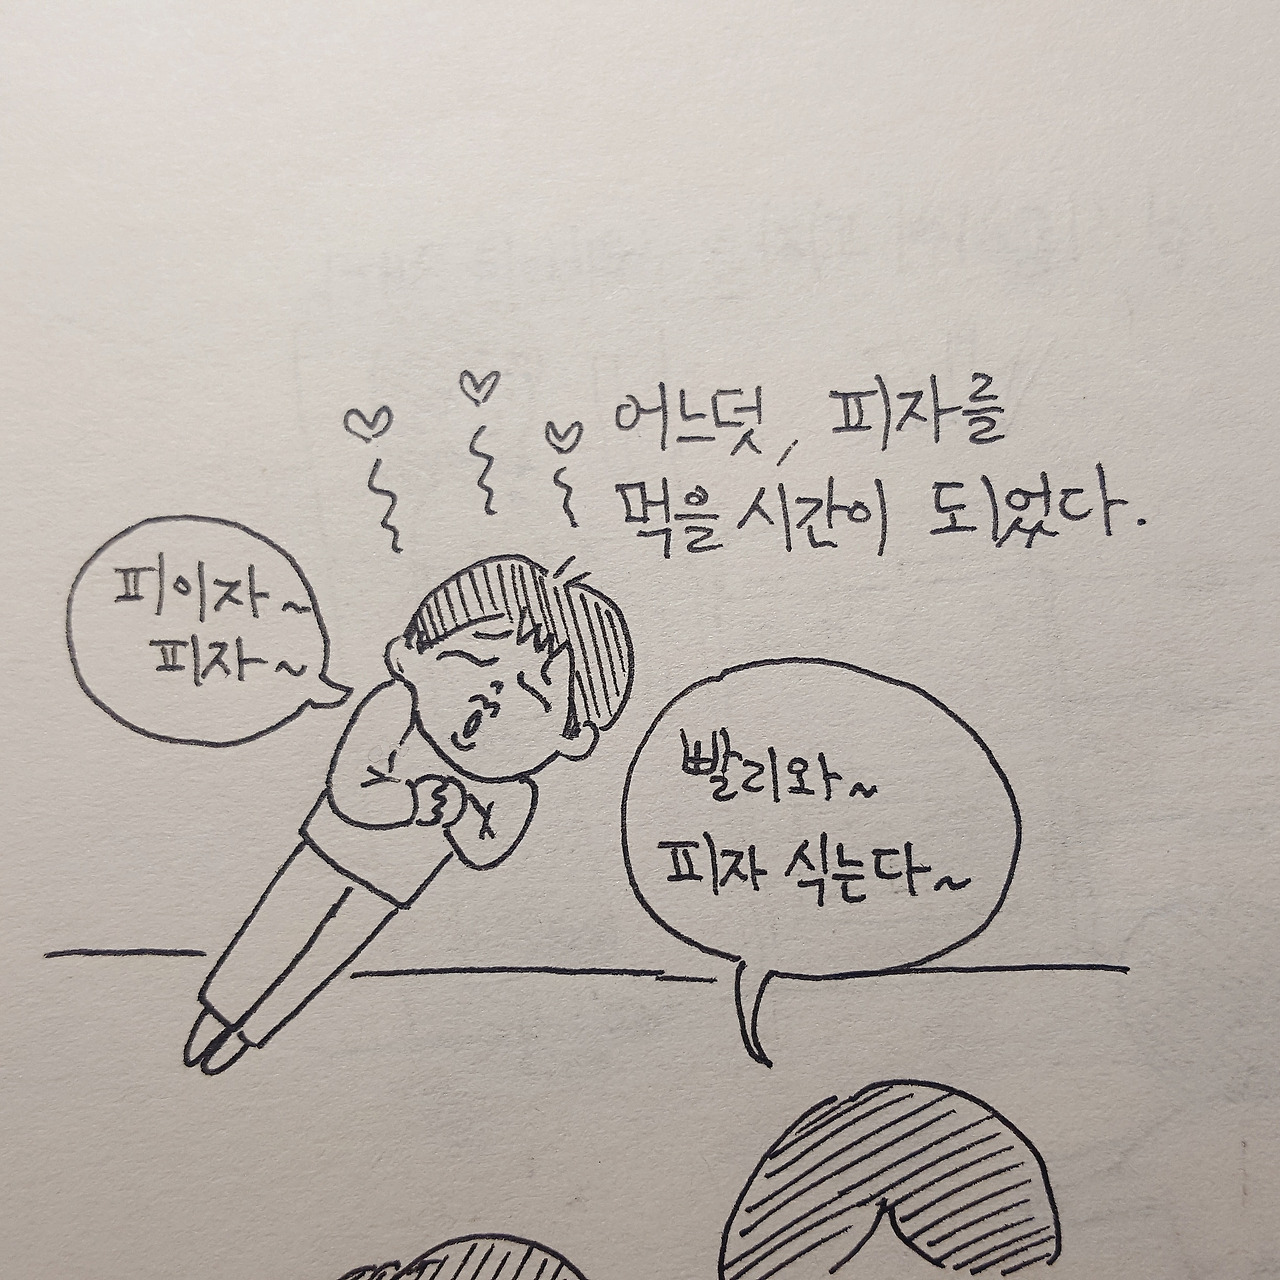 어느덧, 피자를
먹을 시간이 되었다.
피이자~
피자~
빨리와~
피자 식는다~